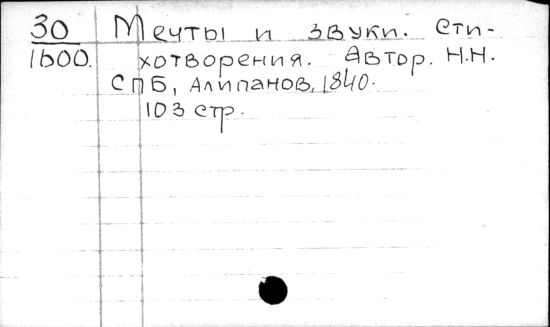 30 Мечты и звуки. Сти-
1600. хотворения. Автор. Н.Н.
СПБ, Алипанов, 1840.
103 стр.